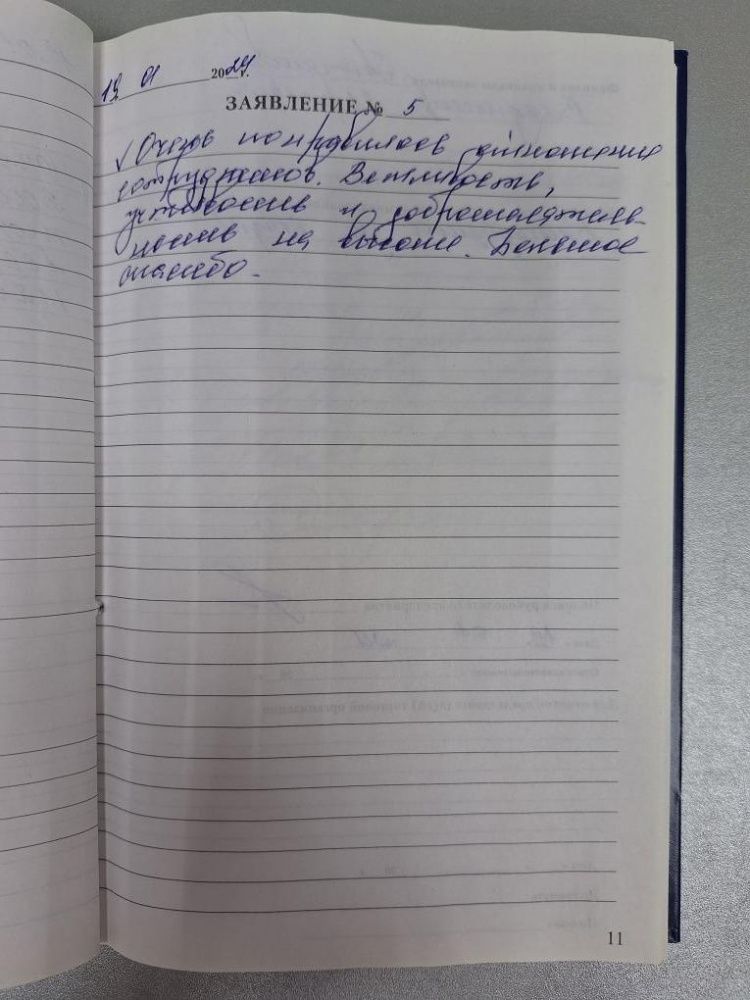 19 01 2024 г.
ЗАЯВЛЕНИЕ № 5
✓ Очень понравилось отношение
сотрудников. Вежливость,
учтивость и доброжелатель-
ность на высоте. Большое
спасибо.
11